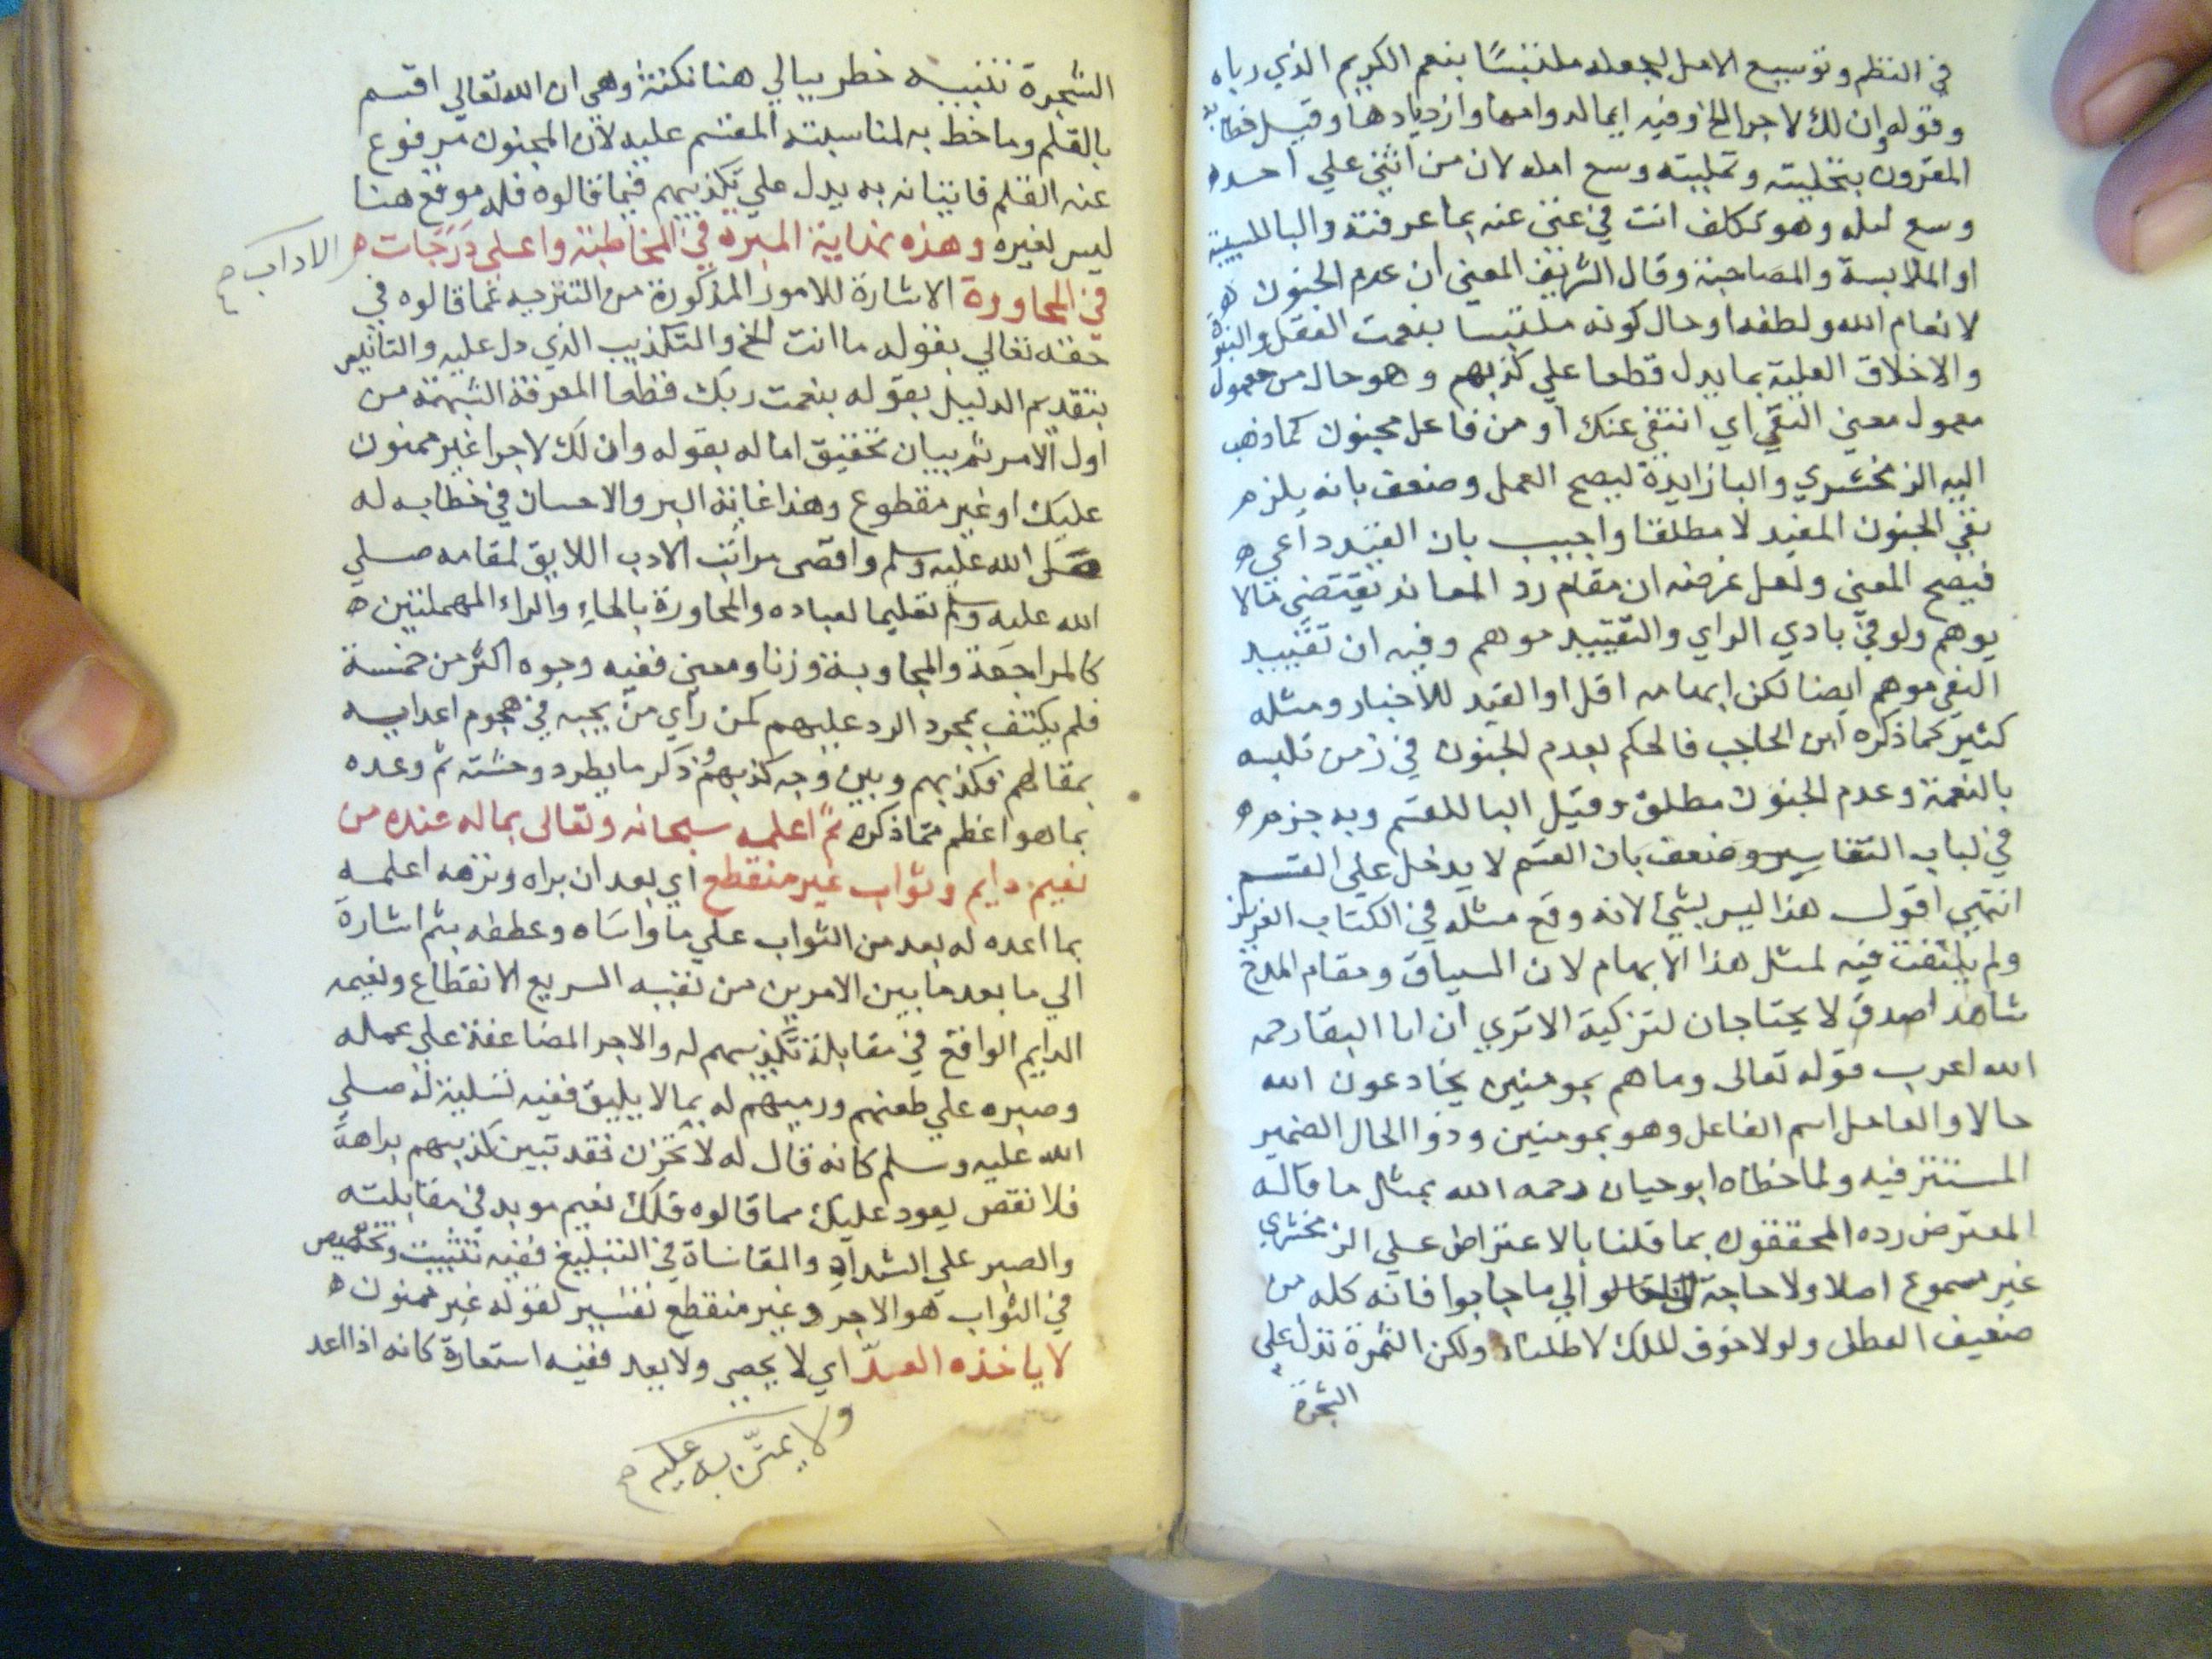 في النظم وتوسيع الامل لجعله ملتبسًا بنعم الكريم الذي رباه
وقوله وان لك لاجرا الخ وفيه ايما لدوامها وازديادها وقيل خطابه
المقرون بتخليته وتحليته وسع امله لان من اثنى علي احد
وسع امله وهو تكلف انت في غنى عنه بما عرفته والبا للسببية
او الملابسة والمصاحبة وقال الشريف المعنى ان عدم الجنون
لانعام الله ولطفه او حال كونه ملتبسا بنعمت العقل والنبوة
والاخلاق العلية بما يدل قطعا علي كذبهم وهو حال من معمول
معمول معنى النفي اي انتفي عنك او من فاعل مجنون كما ذهب
اليه الزمخشري والبا زايدة ليصح العمل وضعف بانه يلزم
نفي الجنون المقيد لا مطلقا واجيب بان القيد داعي
فيصح المعنى ولعل غرضه ان مقام رد المعاند يقتضى مالا
يوهم ولو في بادي الراي والتقييد موهم وفيه ان تقييد
النفي موهم ايضا لكن ايهامه اقل او القيد للاخبار ومثله
كثير كما ذكره ابن الحاجب فالحكم بعدم الجنون في زمن تلبسه
بالنعمة وعدم الجنون مطلق وقيل البا للقسم وبه جزم
في لباب التفاسير وضعف بان القسم لا يدخل علي القسم
انتهي اقول هذا ليس بشيء لانه وقع مثله في الكتاب العزيز
ولم يلتفت فيه لمثل هذا الايهام لان السياق ومقام المدح
شاهدا صدق لا يحتاجان لتزكية الا تري ان ابا البقا رحمه
الله اعرب قوله تعالى وما هم بمومنين يخادعون الله
حالا والعامل اسم الفاعل وهو بمومنين وذوا الحال الضمير
المستتر فيه ولما خطاه ابو حيان رحمه الله بمثل ما قاله
المعترض رده المحققون بما قلنا بالاعتراض علي الزمخشري
غير مسموع اصلا ولا حاجة الي ما اجابوا فانه كله من
ضعيف العطل ولولا خوف الملك لاطلناه ولكن الثمرة تدل علي
الشجرة
الشجرة تنبيه خطر ببالي هنا نكتة وهي ان الله تعالي اقسم
بالقلم وما خط به لمناسبته المقسم عليه لان المجنون مرفوع
عنه القلم فاتيانه به يدل علي تكذيبهم فيما قالوه فله موقع هنا
ليس لغيره وهذه نهاية المبره في المخاطبة واعلى درجات
الاداب صح
في المحاورة الاشارة للامور المذكورة من التنزيه عما قالوه في
حقه تعالي بقوله ما انت الخ والتكذيب الذي دل عليه والتانيس
بتقديم الدليل بقوله بنعمت ربك قطعا لمعرفة الشبهة من
اول الامر ثم بيان تحقيق اماله بقوله وان لك لاجرا غير ممنون
عليك او غير مقطوع وهذا غاية البر والاحسان في خطابه له
صلى الله عليه وسلم واقصى مراتب الادب اللايق لمقامه صلي
الله عليه وسلم تعليما لعباده والمحاورة بالحاء والراء المهملتين
كالمراجعة والمجاوبة وزنا ومعنى ففيه وجوه اكثر من خمسة
فلم يكتف بمجرد الرد عليهم كمن رأي من يحبه في هجوم اعدايه
بمقالهم فكذبهم وبين وجه كذبهم وذكر ما يطرد وحشته ثم وعده
بما هو اعظم مما ذكره ثم اعلمه سبحانه وتعالى بماله عنده من
نعيم دايم وثواب غير منقطع اي بعد ان براه ونزهه اعلمه
بما اعده له بعد من الثواب علي ما واساه وعطفه بثم اشارة
الي ما بعد ما بين الامرين من نفيه السريع الانقطاع ونعيمه
الدايم الواقع في مقابلة تكذيبهم له والاجر المضاعفة علي عمله
وصبره علي طعنهم ورميهم له بما لا يليق ففيه تسلية له صلي
الله عليه وسلم كانه قال له لا تحزن فقد تبين كذبهم بداهة
فلا نقص يعود عليك مما قالوه فلك نعيم موبد في مقابلته
والصبر علي الشدايد والمقاساة في التبليغ ففيه تثبيت وتخصيص
في الثواب هو الاجر وغير منقطع تفسير لقوله غير ممنون
لا ياخذه العد اي لا يحصي ولا يعد ففيه استعارة كانه اذا اعد
ولا يمتن به عليه صح